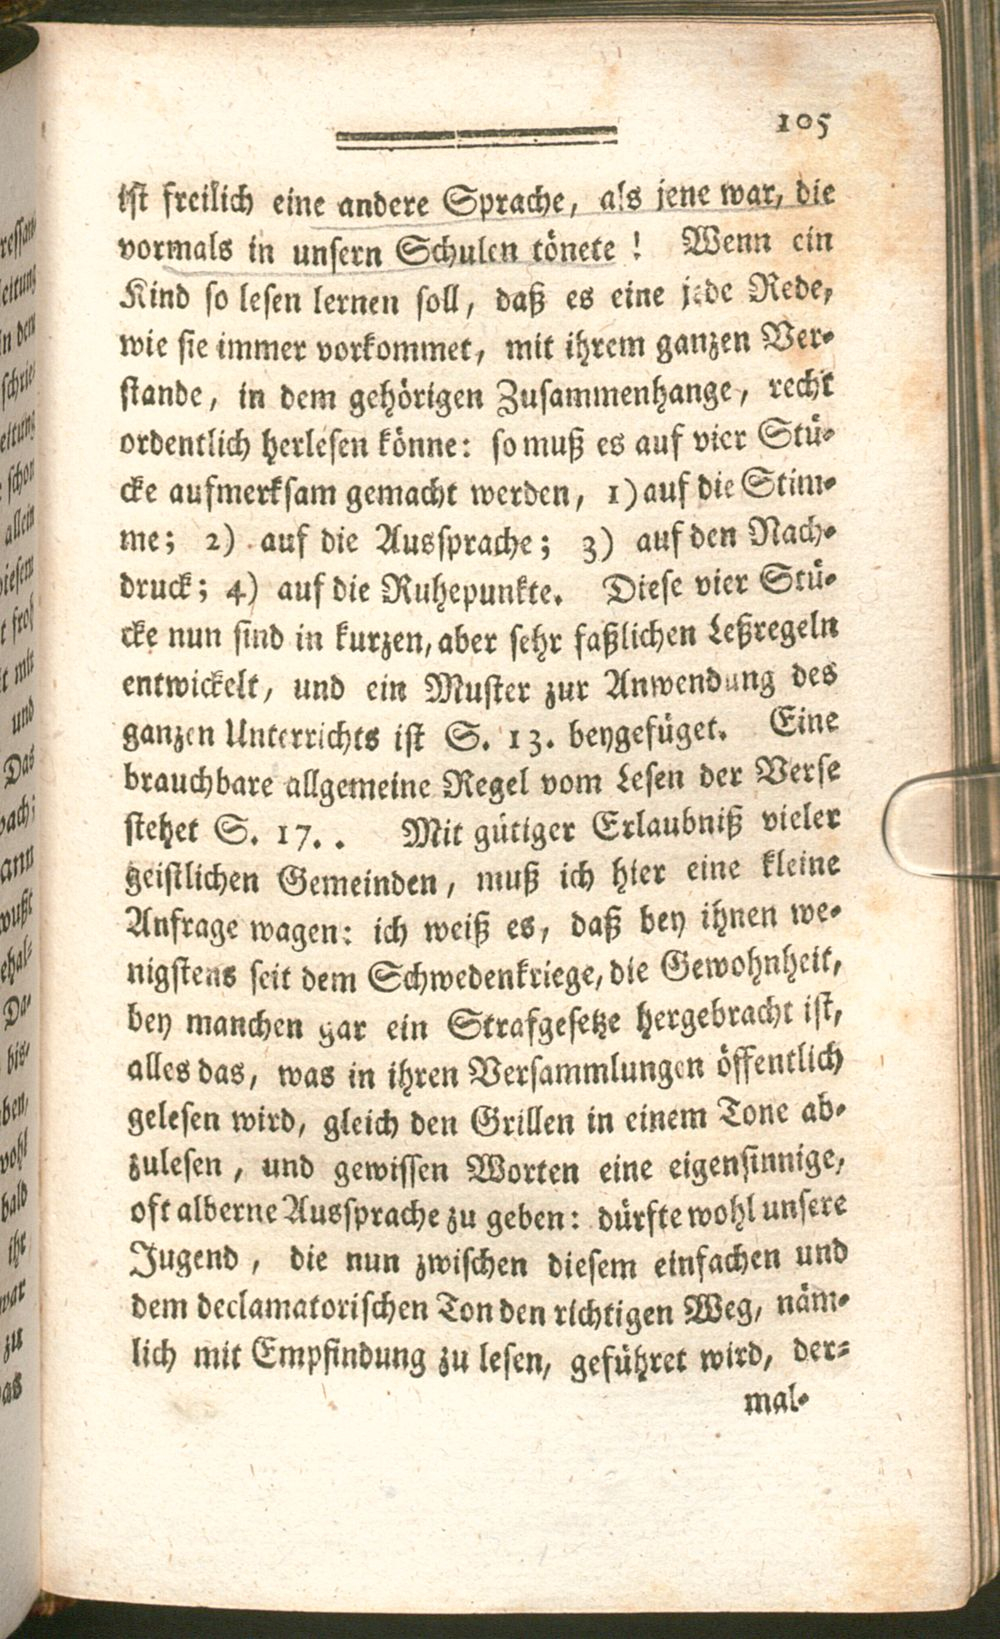 105
ist freilich eine andere Sprache, als jene war, die
vormals in unsern Schulen tönete! Wenn ein
Kind so lesen lernen soll, daß es eine jede Rede,
wie sie immer vorkommet, mit ihrem ganzen Ver-
stande, in dem gehörigen Zusammenhange, recht
ordentlich herlesen könne: so muß es auf vier Stü-
cke aufmerksam gemacht werden, 1) auf die Stim-
me; 2) auf die Aussprache; 3) auf den Nach-
druck; 4) auf die Ruhepunkte. Diese vier Stü-
cke nun sind in kurzen, aber sehr faßlichen Leßregeln
entwickelt, und ein Muster zur Anwendung des
ganzen Unterrichts ist S. 13. beygefüget. Eine
brauchbare allgemeine Regel vom Lesen der Verse
stehet S. 17. . Mit gütiger Erlaubniß vieler
geistlichen Gemeinden, muß ich hier eine kleine
Anfrage wagen: ich weiß es, daß bey ihnen we-
nigstens seit dem Schwedenkriege, die Gewohnheit,
bey manchen gar ein Strafgesetze hergebracht ist,
alles das, was in ihren Versammlungen öffentlich
gelesen wird, gleich den Grillen in einem Tone ab-
zulesen, und gewissen Worten eine eigensinnige,
oft alberne Aussprache zu geben: dürfte wohl unsere
Jugend, die nun zwischen diesem einfachen und
dem declamatorischen Ton den richtigen Weg, näm-
lich mit Empfindung zu lesen, geführet wird, der-
mal-